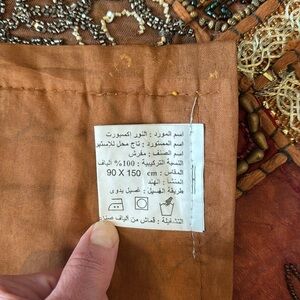 اسم المورد : النور إكسبورت
اسم المستورد : تاج محل للاستير
اسم الصنف : مفرش
النسبة التركيبية : 100% الياف
المقاس : cm 150 X 90
المنشأ : الهند
طريقة الغسيل : غسيل يدوى
: قماش من الياف صناعية